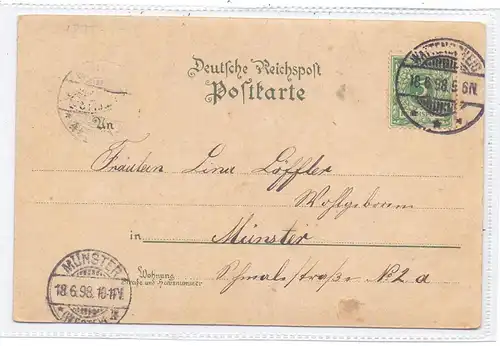 Deutsche Reichspost
Postkarte
WATTENSCHEID
18.6.98.5-6N.
An
Fräulein Lina Löffler
Wohlgeboren
in Münster
Wohnung
Straße und Hausnummer
Schmalestraße No 2 a
MÜNSTER
18.6.98.10-11N.
(WESTF.)